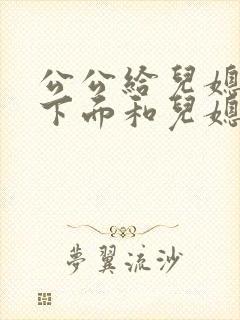 公公給兒媳
下而和兒媳
夢翼流沙